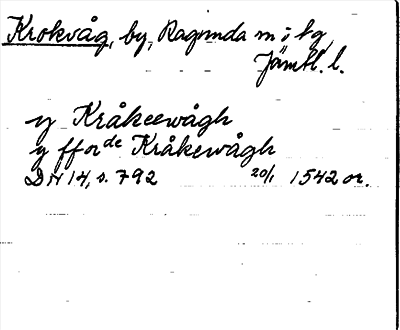 Krokvåg, by, Ragunda sn o tg,
Jämtl. l.
y Kråkeewågh
y fforde Kråkewågh
DN 14, s. 792 20/1 1542 or.